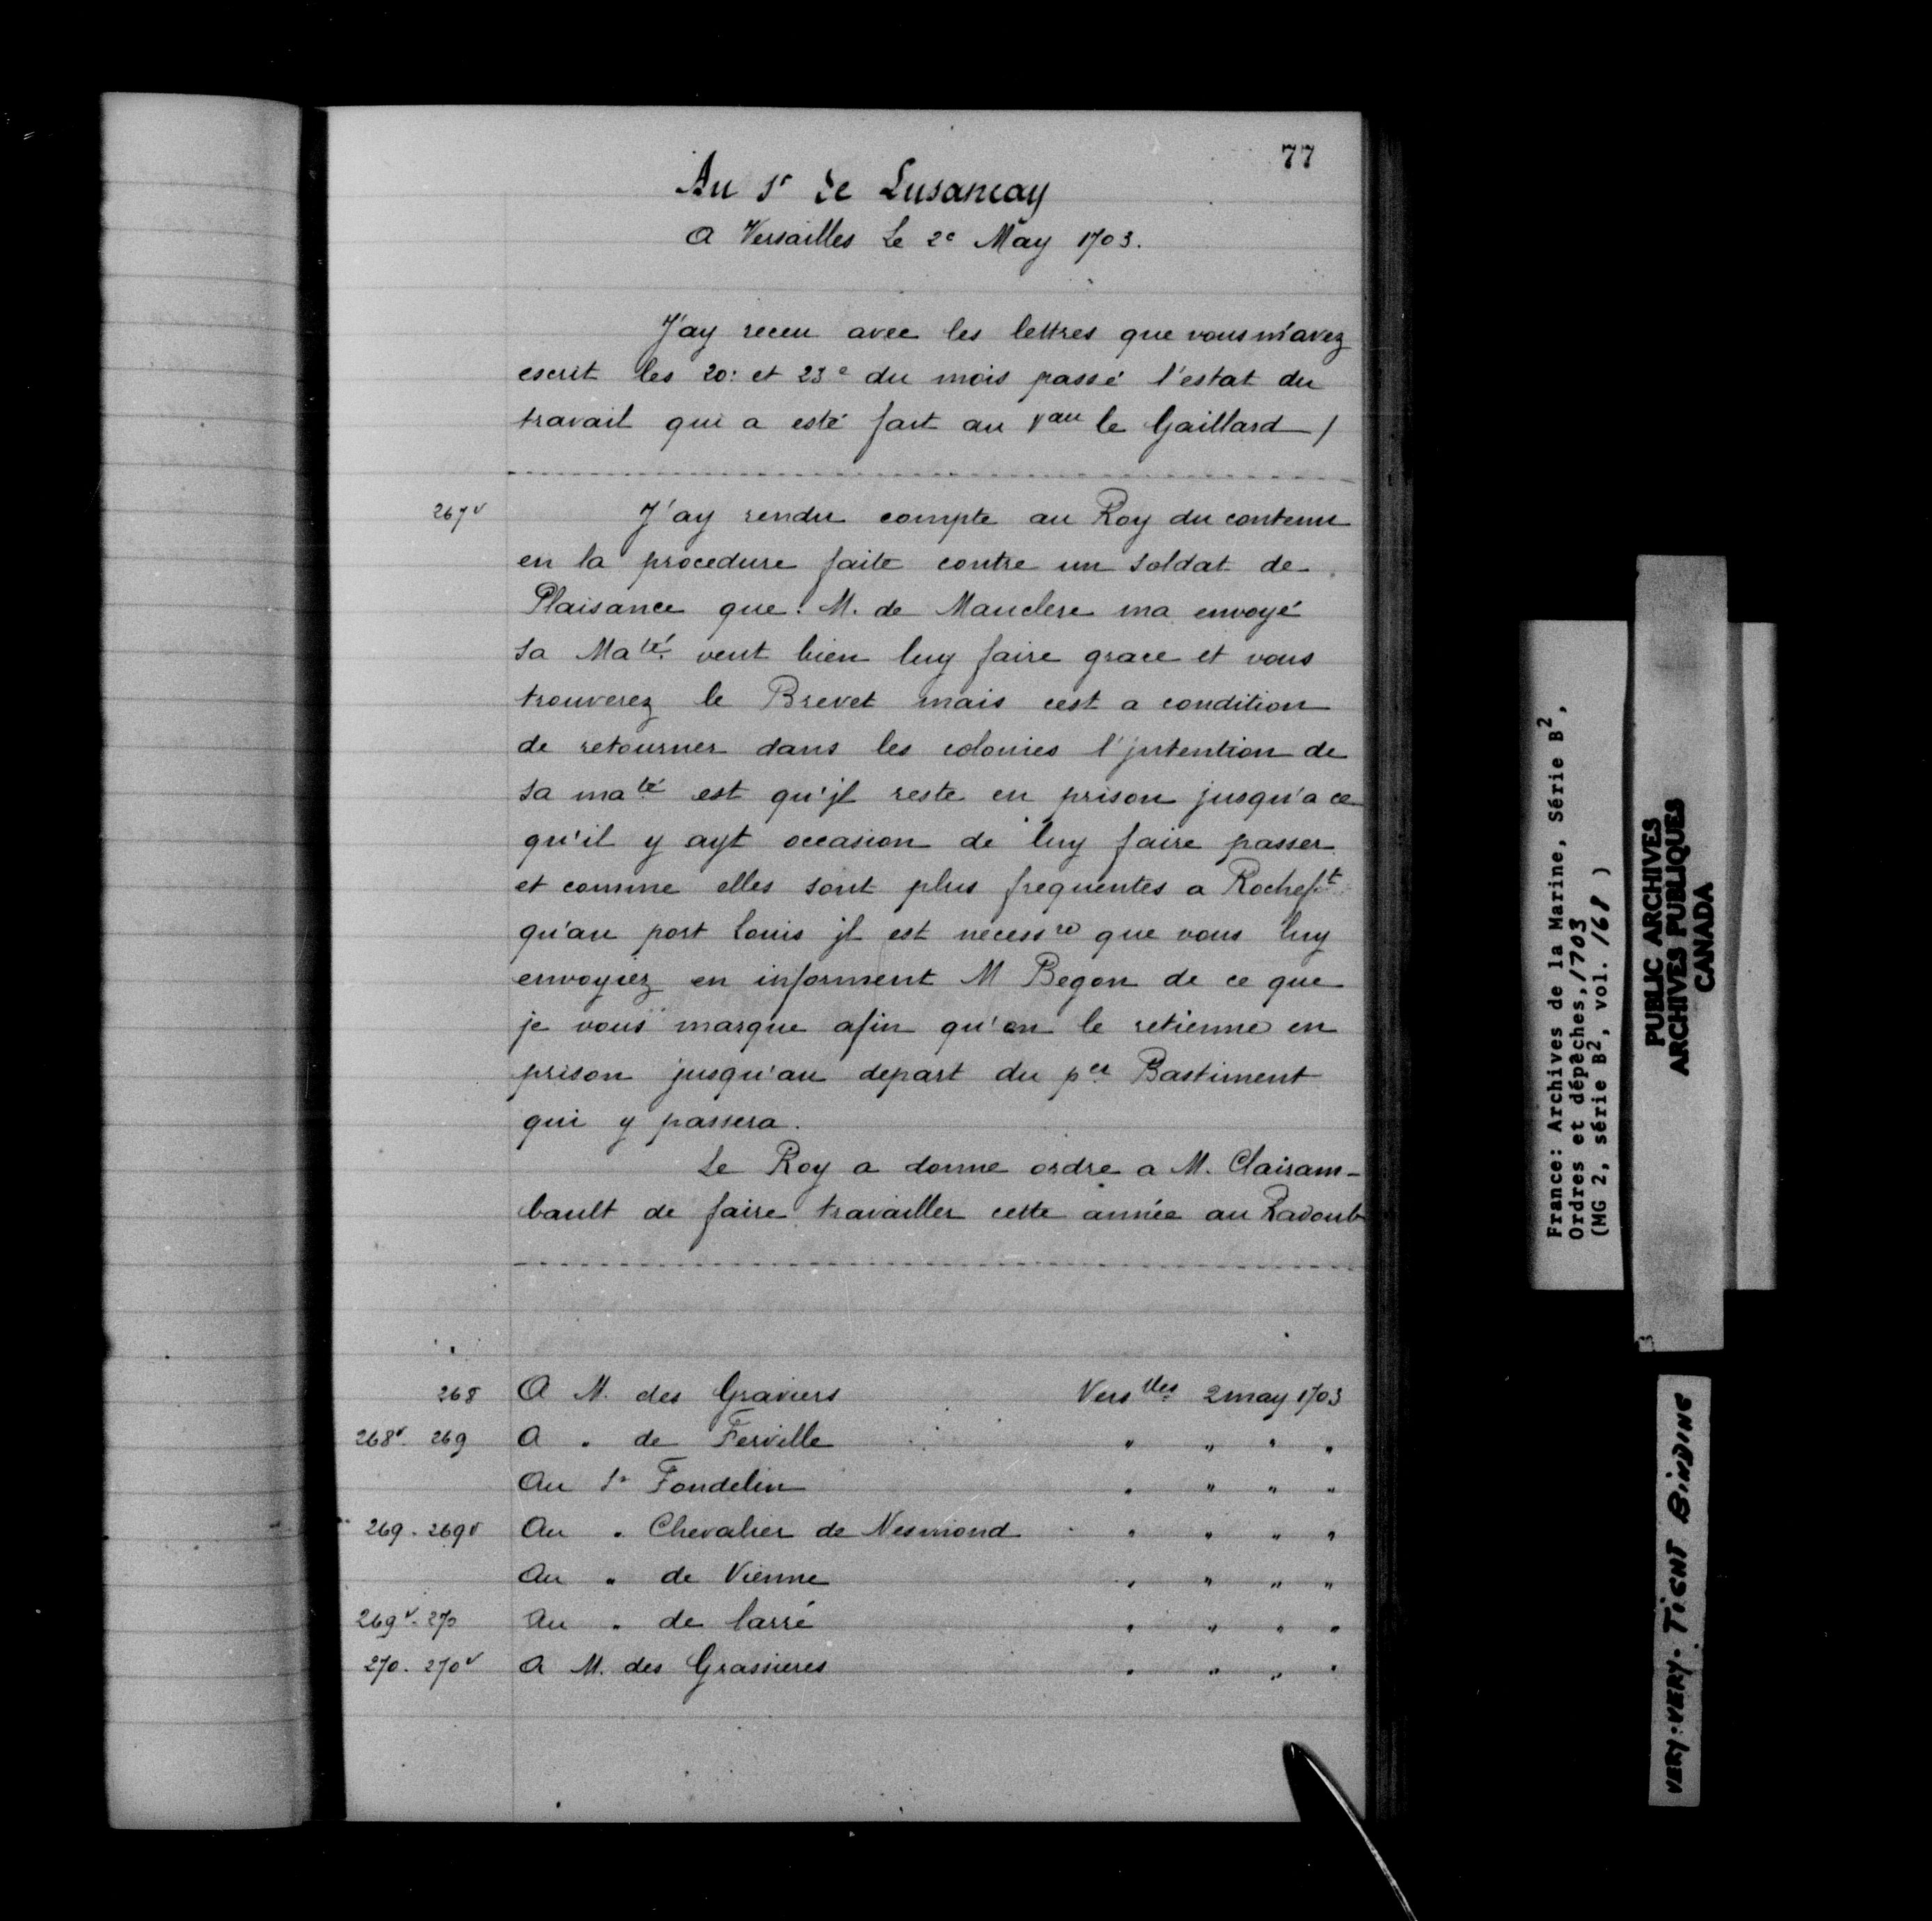 77
Au Sr de Lusancay
A Versailles Le 2e May 1703.
J'ay receu avec les lettres que vous m'avez
escrit les 20: et 23e du mois passé l'estat du
travail qui a esté fait au Vau le Gaillard /
267v J'ay rendu compte au Roy du contenu
en la procedure faite contre un soldat de
Plaisance que M. de Mauclere ma envoyé
sa Maté veut bien luy faire grace et vous
trouverez le Brevet mais cest a condition
de retourner dans les colonies l'jntention de
sa maté est qu'jl reste en prison jusqu'a ce
qu'il y ayt occasion de luy faire passer
et comme elles sont plus frequentes a Rocheft
qu'au port Louis jl est necessre que vous luy
envoyiez en informent M Begon de ce que
je vous marque afin qu'on le retienne en
prison jusqu'au depart du per Bastiment
qui y passera.
Le Roy a donné ordre a M. Clairam-
bault de faire travailler cette année au Radoub
268 A M. des Graviers Verslles 2 may 1703
268v. 269 A " de Ferville " " " "
Au Sr Fondelin " " " "
269. 269v Au " Chevalier de Nesmond " " " "
Au " de Vienne " " " "
269v. 270 Au " de Larré " " " "
270. 270v A M. des Grassieres " " " "
France: Archives de la Marine, Série B2,
Ordres et dépêches, 1703
(MG 2, série B2, vol. 168 )
PUBLIC ARCHIVES
ARCHIVES PUBLIQUES
CANADA
VERY-VERY-TIGHT BINDING